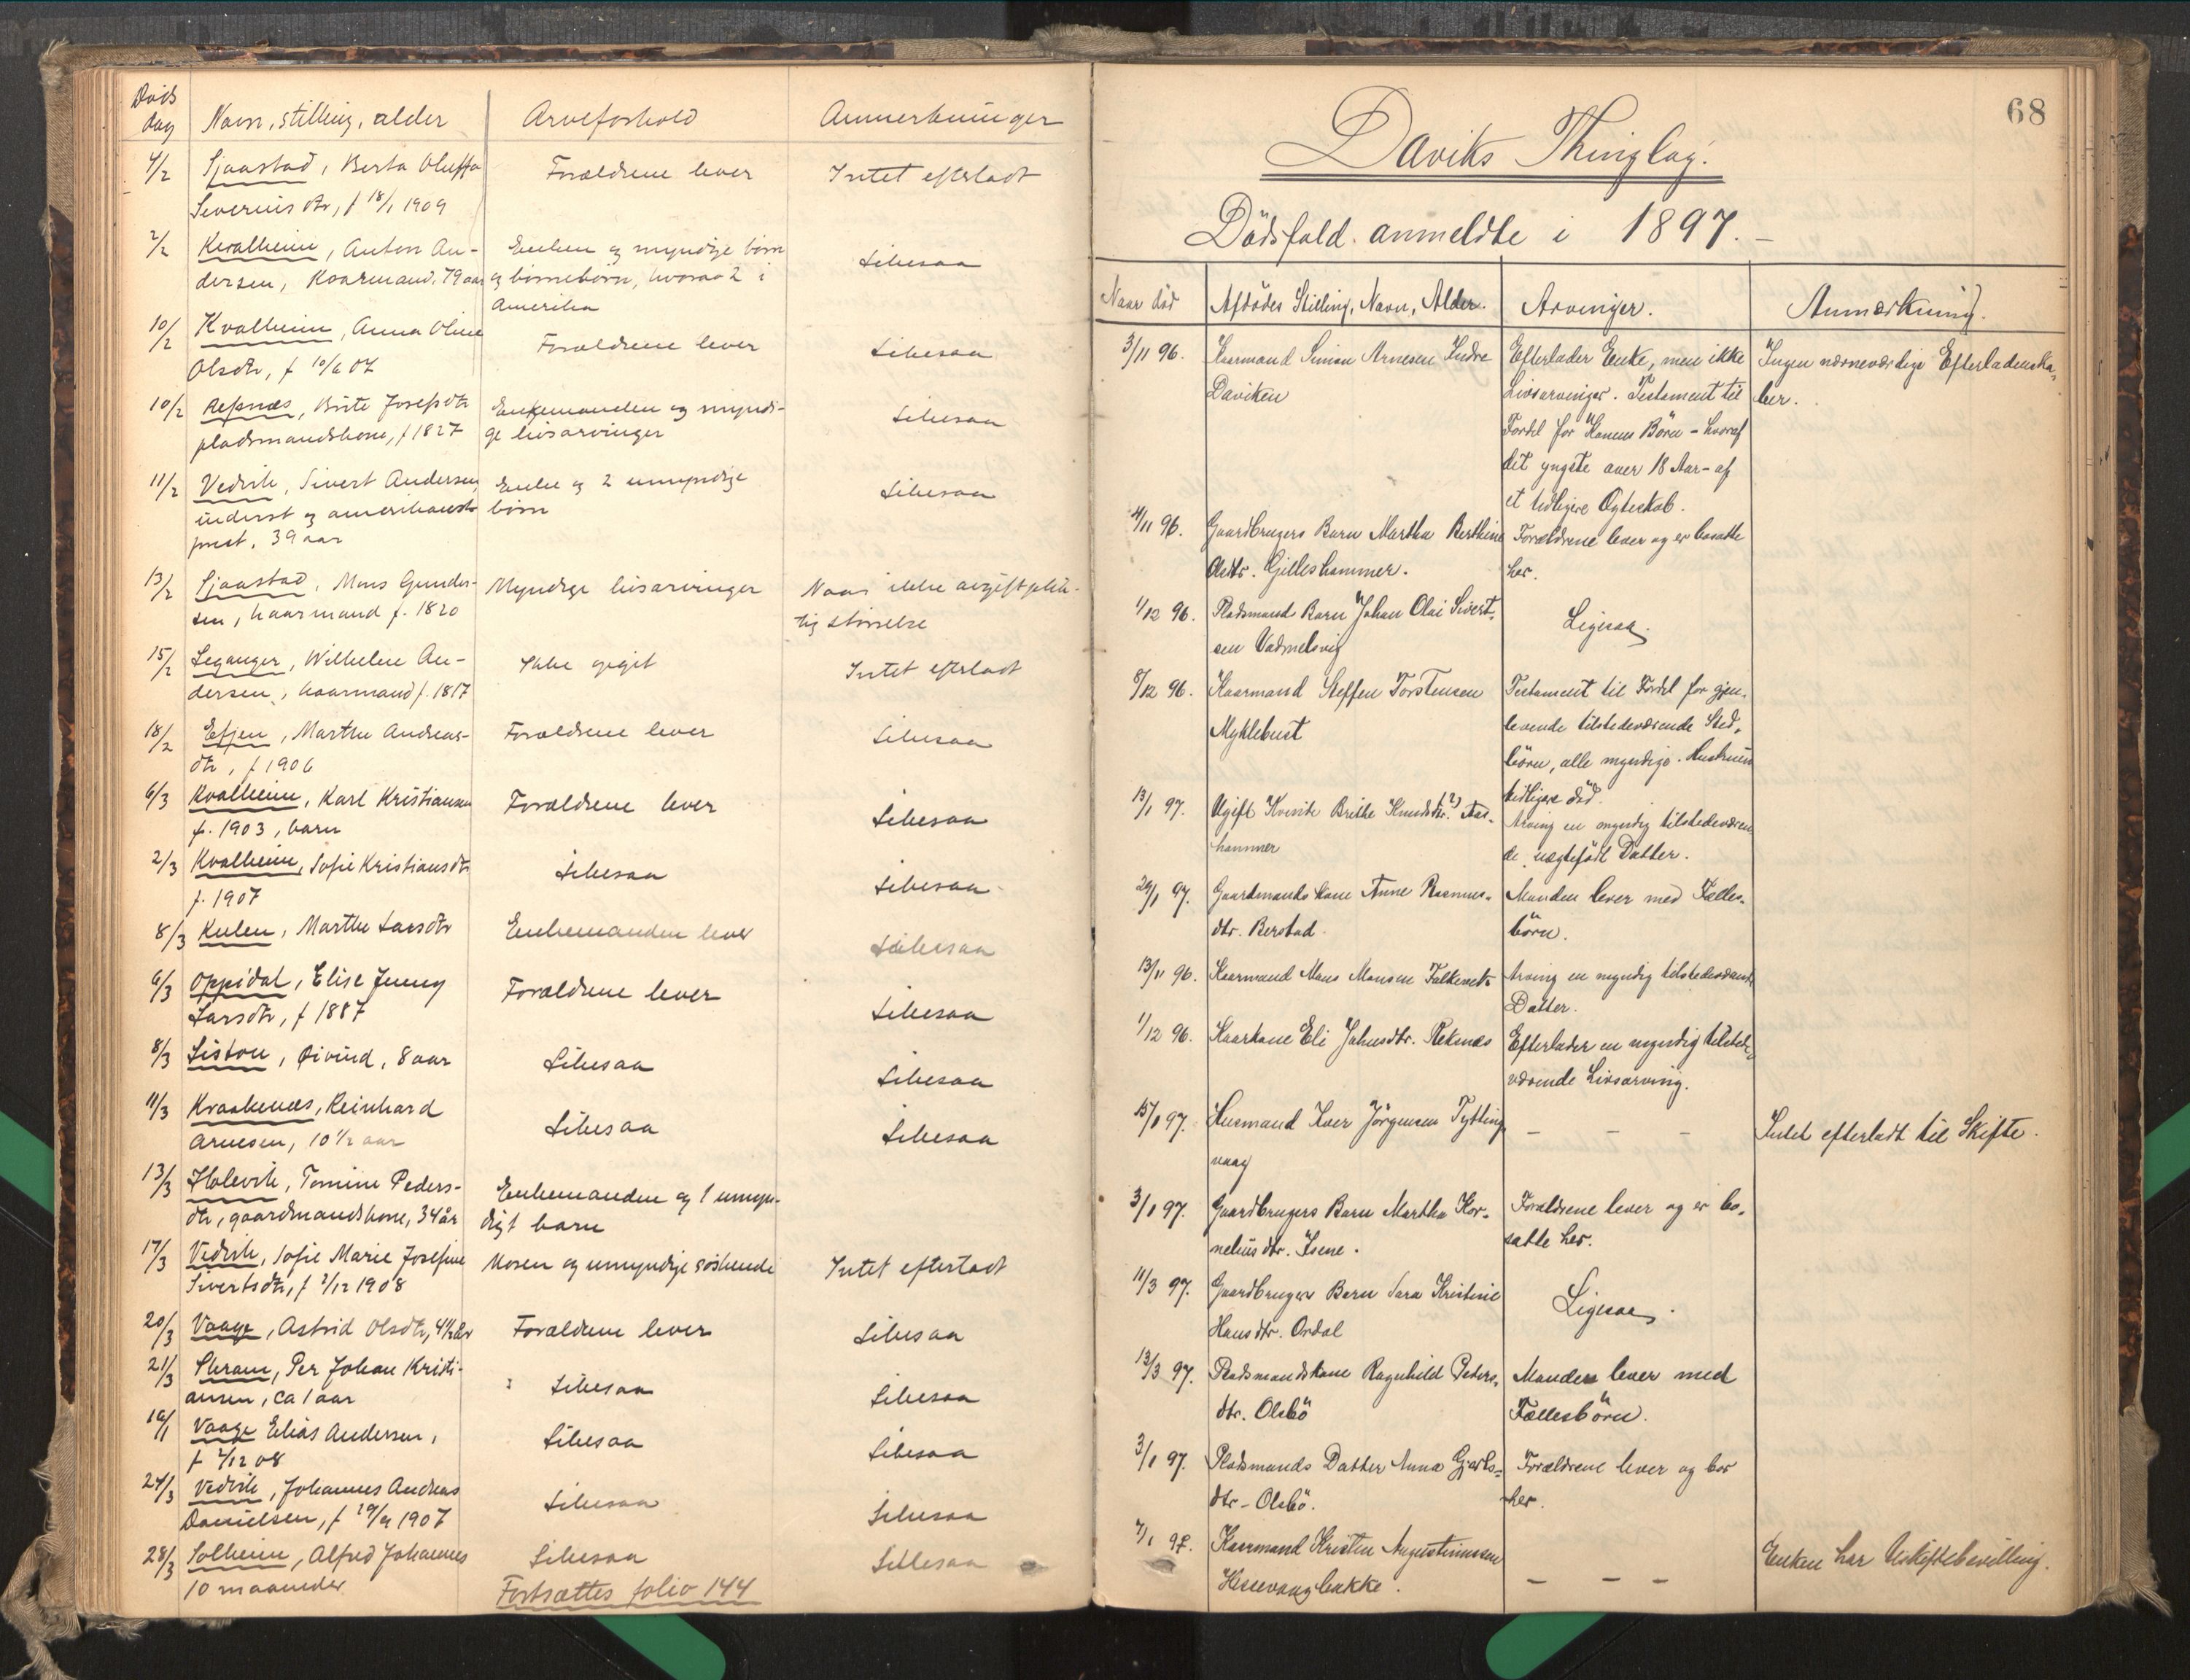 Døds
dag
Navn, stilling, alder
Arveforhold
Anmerkninger
4/2
Sjaastad, Berta Oluffa
Forældrene lever
Intet efterladt
Severins dtr, f 18/1 1909
2/2
Kvalheim, Anton An-
Enken og myndige børn
Likesaa
dersen, Kaarmand. 79 aar
og børnebørn, hvorav 2 i
Amerika
10/2
Kvalheim, Anna Oline
Forældrene lever
Likesaa
Olsdtr, f 10/6 07
10/2
Refsnæs, Brite Josefsdtr
Enkemanden og myndi-
Likesaa
pladsmandskone, f 1827
ge livsarvinger
11/2
Vedvik, Sivert Andersen,
Enke og 2 umyndige
Likesaa
inderst og amerikansk
børn
39 aar
13/2
Sjaastad, Mons Gunder-
Myndige livsarvinger
Naar ikke avgiftplik-
sen, kaarmand f. 1820
tig størrelse
15/2
Leganger, Wilhelm An-
Ikke opgit
Intet efterladt
dersen, kaarmand f. 1817
18/2
Efjen, Marthe Andreas-
Forældrene lever
Likesaa
dtr, f 1906
6/3
Kvalheim, Karl Kristiansen
Forældrene lever
Likesaa
f. 1903, barn
2/3
Kvalheim, Sofie Kristiansdtr
Likesaa
Likesaa
f. 1907
8/3
Kulen, Marthe Larsdtr
Enkemanden lever
Likesaa
6/3
Oppidal, Elise Jenny
Forældrene lever
Likesaa
Larsdtr, f 1887
8/3
Liston, Øivind, 8 aar
Likesaa
Likesaa
11/3
Kraakenæs, Reinhard
Likesaa
Likesaa
Arnesen, 10 1/2 aar
13/3
Holevik, Tomine Peders-
Enkemanden og 1 umyn-
dtr, gaardmandskone, 34 år
digt barn
17/3
Vedvik, Sofie Marie Josefine
Moren og umyndige søskende
Intet efterladt
Sivertsdtr, f 2/12 1908
20/3
Vaage, Astrid Olsdtr, 4 1/2 år
Forældrene lever
Likesaa
21/3
Skram, Per Johan Kristi-
Likesaa
Likesaa
ansen, ca 1 aar
19/1
Vaage Elias Andersen,
Likesaa
Likesaa
f 2/12 08
24/3
Vedvik, Johannes Andreas
Likesaa
Likesaa
Danielsen, f 29/9 1907
28/3
Solheim, Alfred Johannes
Likesaa
Likesaa
10 maaneder
Fortsættes folio 144
68
Daviks Thinglag.
Dödsfald anmeldte i 1897.
Naar död
Afdödes Stilling, Navn, Alder.
Arvinger.
Anmærkning.
3/11 96.
Kaarmand Simon Arnesen Indre
Efterlader Enke, men ikke
Ingen nævneværdige Efterladenska-
Daviken
Livsarvinger. Testament til
ber.
Fordel for Konens Börn - hvoraf
det yngste over 18 Aar - af
et tidligere Ægteskab.
4/11 96.
Gaardbrugers Barn Martha Berthine
Forældrene lever og er bosatte
Olsdtr. Gilleshammer.
her.
1/12 96.
Pladsmands Barn Johan Olai Sivert-
Ligesaa.
sen Vadmelsvig
8/12 96.
Kaarmand Steffen Torstensen
Testament til Fordel for gjen-
Myklebust
levende tilstedeværende Sted-
börn, alle myndige. Hustruen
tidligere död.
13/1 97.
Ugift Kvinde Brithe Knudsdtr. (?) Aar-
Arving en myndig tilstedeværen-
hammer
de uægtefödt Datter.
29/1 97.
Gaardmands Kone Anne Rasmus-
Manden lever med Fælles-
dtr. Berstad.
börn.
13/11 96.
Kaarmand Mons Monsen Falkevik
Arving en myndig tilstedeværende
Datter.
1/12 96.
Kaarkone Eli Johnsdtr. Reksnæs
Efterlader en myndig tilstede-
værende Livsarving.
15/1 97.
Husmand Iver Jörgensen Tytting
- - -
Intet efterladt til Skifte.
vaag
3/1 97.
Gaardbrugers Barn Martha Kor-
Forældrene lever og er bo-
neliusdtr. Isene.
satte her.
11/3 97.
Gaardbrugers Barn Sara Kristine
Ligesaa.
Hansdtr. Ordal
13/3 97.
Pladsmandskone Ragnhild Peders-
Manden lever med
dtr. Olsbö
Fællesbörn.
3/1 97.
Pladsmands Datter Anna Gjerts-
Forældrene lever og bor
dtr - Olsbö.
her.
7/1 97.
Kaarmand Kristen Augustinussen
- - -
Enken har Uskiftebevilling.
Hessevaagbakke.